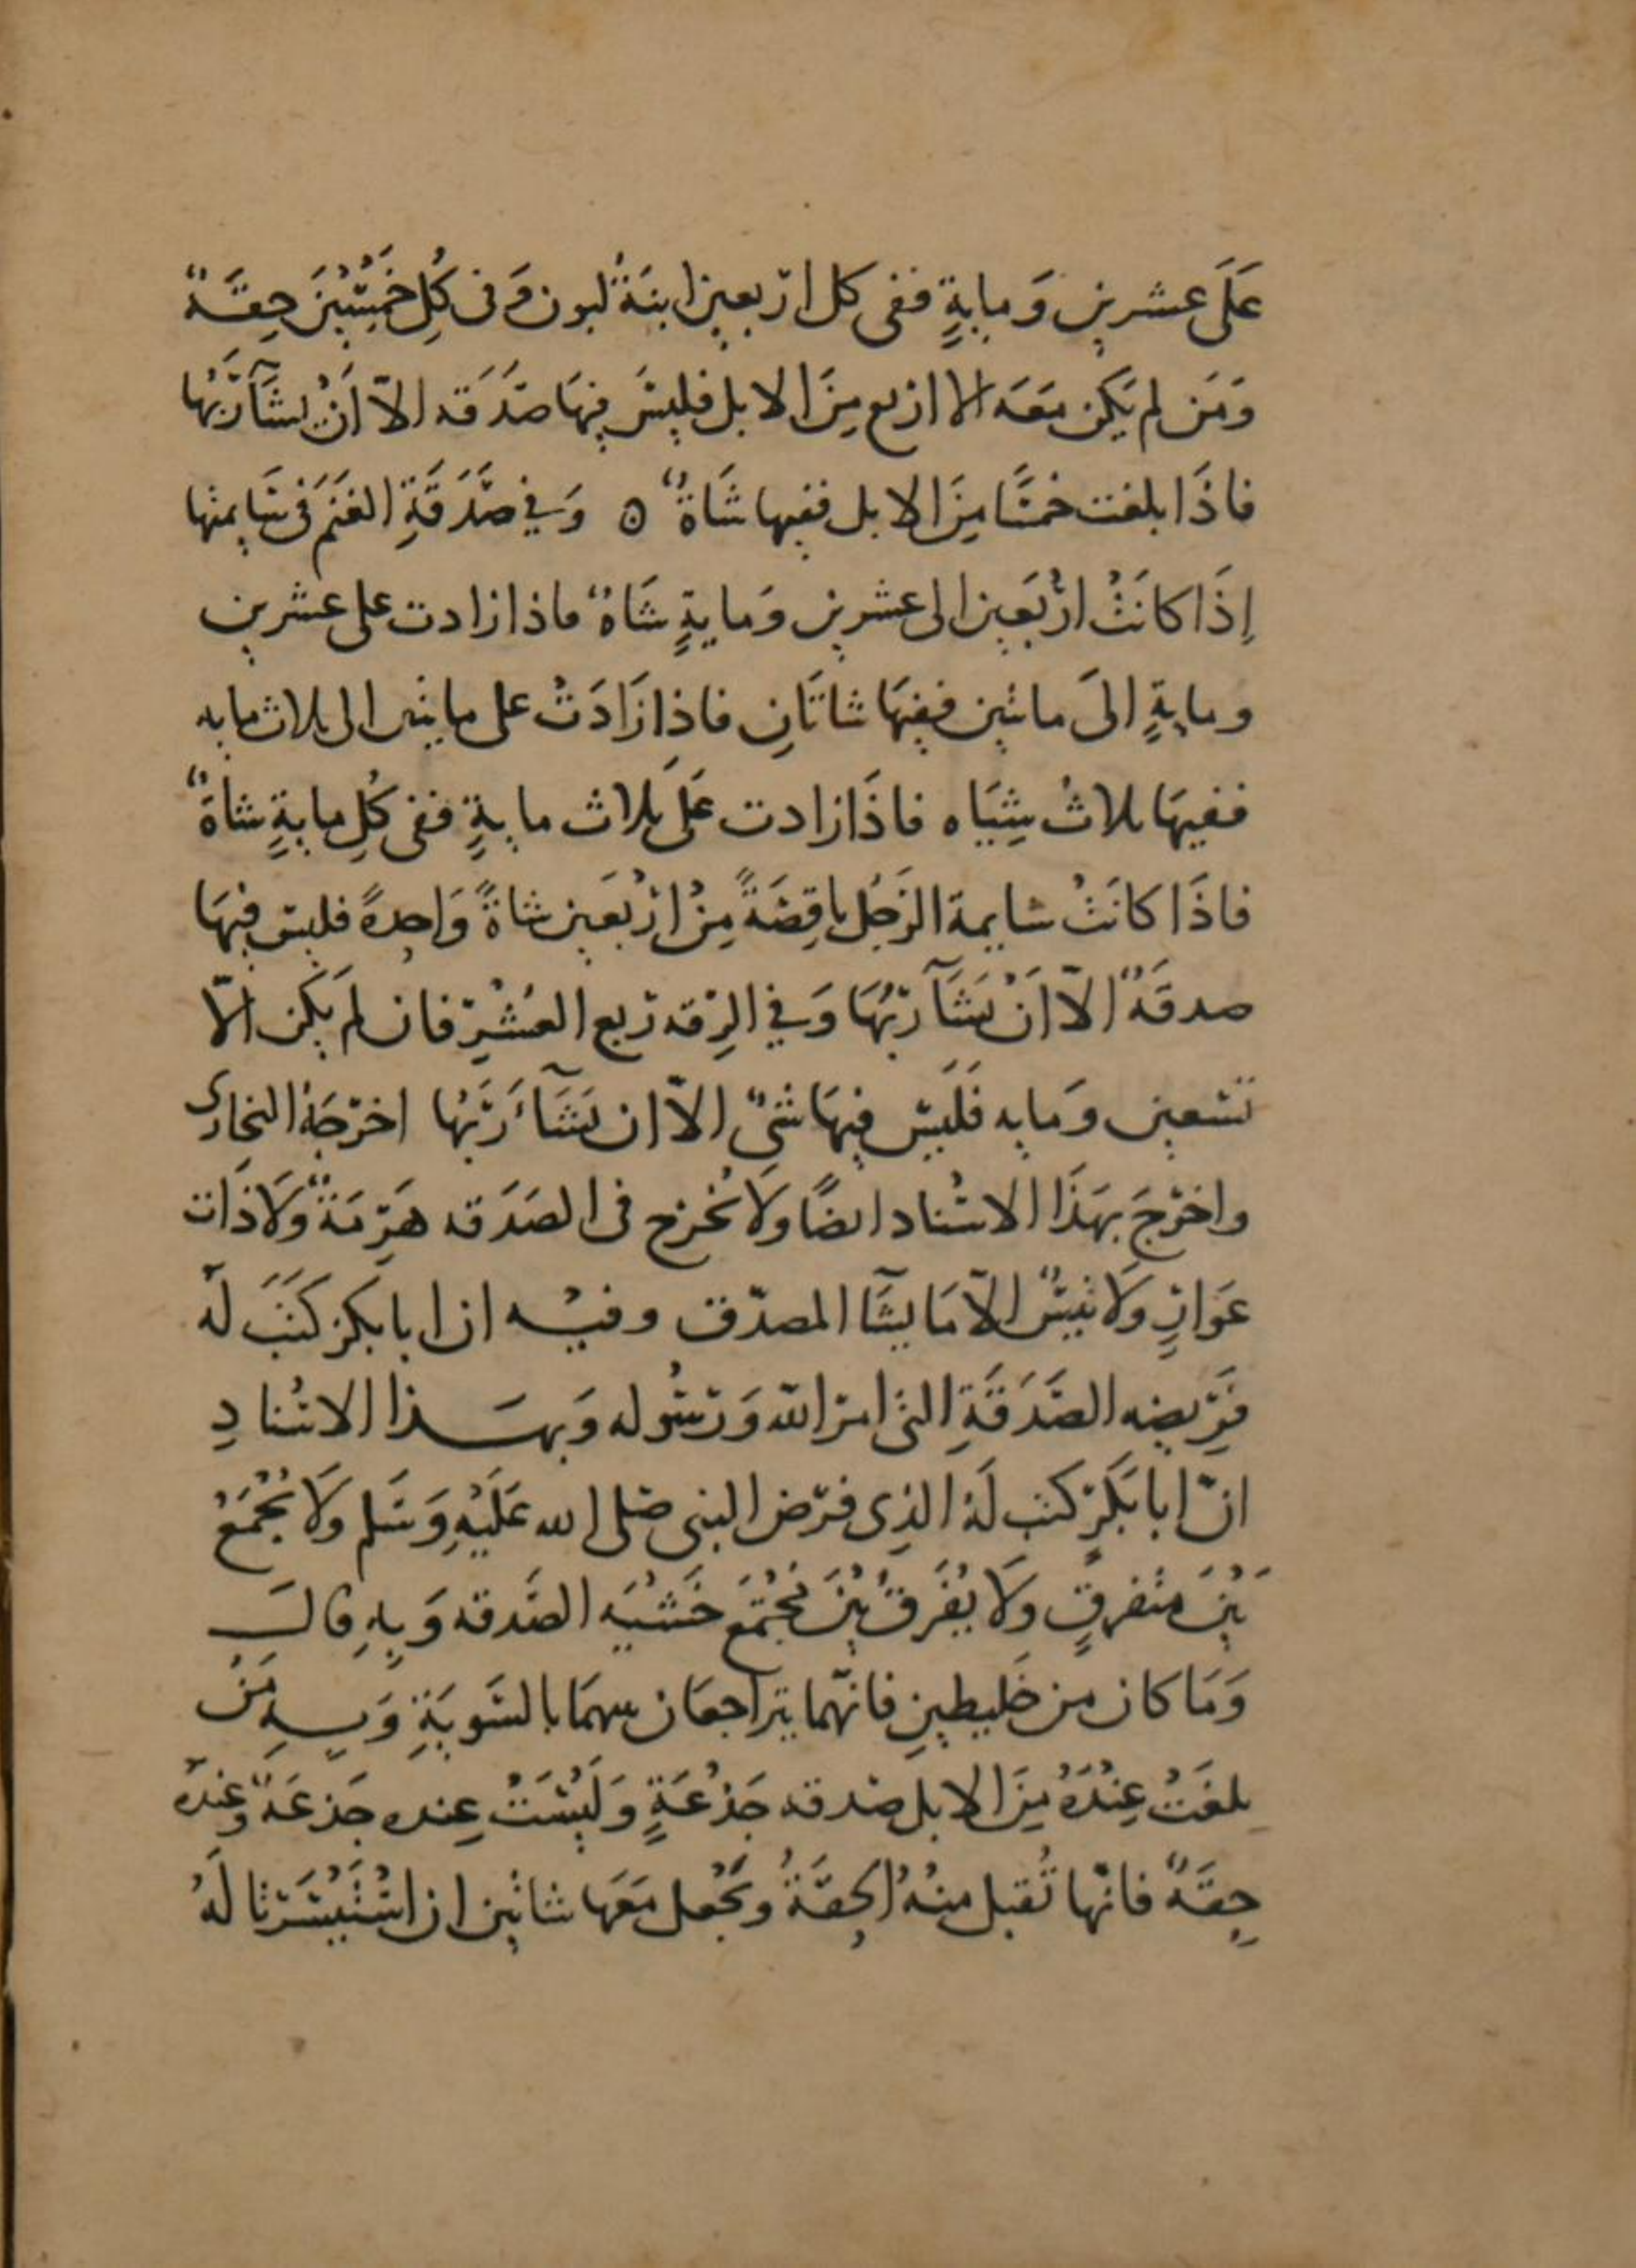 عَلَى عشرين وَمايةٍ ففى كل اربعين ابنَةُ لبون وَفى كُلِ خَمْسِيْنَ حِقَةٌ
وَمَن لم يَكن مَعَه الا اربع مِنَ الابل فليسَ فيهَا صَدَقَه الاّ اَنْ يشَآ رَبُّهَا
فاذَا بلغت خمسًا مِنَ الابل ففيها شَاةٌ ۞ وَفي صَدَقَةِ الغَنَم فى سَايمتها
اِذَا كانَتْ ارْبَعين الى عشرين وَمايةٍ شَاةٌ فاذا زادت على عشرين
ومايةٍ الىَ ماتين ففيهَا شاتَانِ فاذا زَادَتْ على مايتين الى ثلاث مايه
ففيهَا ثلاثُ شِيَاه فاذَا زادت عَلَى ثلاث مايةٍ ففى كُلِ مايةٍ شاةٌ
فاذَا كانَتْ سايمة الرَجُل ناقِصَةً مِنْ ارْبَعَين شاةً وَاحِدةً فليس فيهَا
صدقَةٌ الاّ اَنْ يَشَآ رَبّهَا وَفي الرِقه رُبع العُشْرِ فان لمَ يَكن الاّ
تسعين وَمايه فَلَيس فيهَا شىٌ الاّ ان يَشَآءَ رَبّهَا اخرْجَهُ البخارى
واخرَجَ بهَذَا الاسْناد ايضًا ولَا تُخرج فى الصَدَقه هَرِمَةٌ ولَا ذَات
عَوَارٍ ولَا تيسٌ الاّ مَا يشَآ المصدّق وفيْه ان ابا بكر كَتَبَ لَهُ
فَرِيضه الصَدَقَةِ التى امر الله وَرسُوله وَبهذا الاسْنادِ
انّ ابا بَكَرٍ كتب لَهُ الذِى فرَض النبى صَلى الله عَلَيْهِ وَسَلم ولَا يُجْمَعُ
بَيْنَ متْفرقٍ ولَا يُفَرقُ بيْنَ مُجْتَمَع خَشْيَه الصَدقه وَبِهِ قالَ
وَمَا كان من خَليطينِ فانهّما يتراجعَان بينهمَا بالسَويَةِ وَبهِ مَنْ
بلغَتْ عِنْدَهُ مِنَ الابل صَدقه جَذْعَةٍ وَلَيْسَتْ عِنده جَذعَةٌ وعِنْدهُ
حِقَةٌ فانّها تُقبل منْهُ الحِقَةُ وَيَجْعل مَعَهَا شاتين ان اسْتَيْسَرتا لَهُ